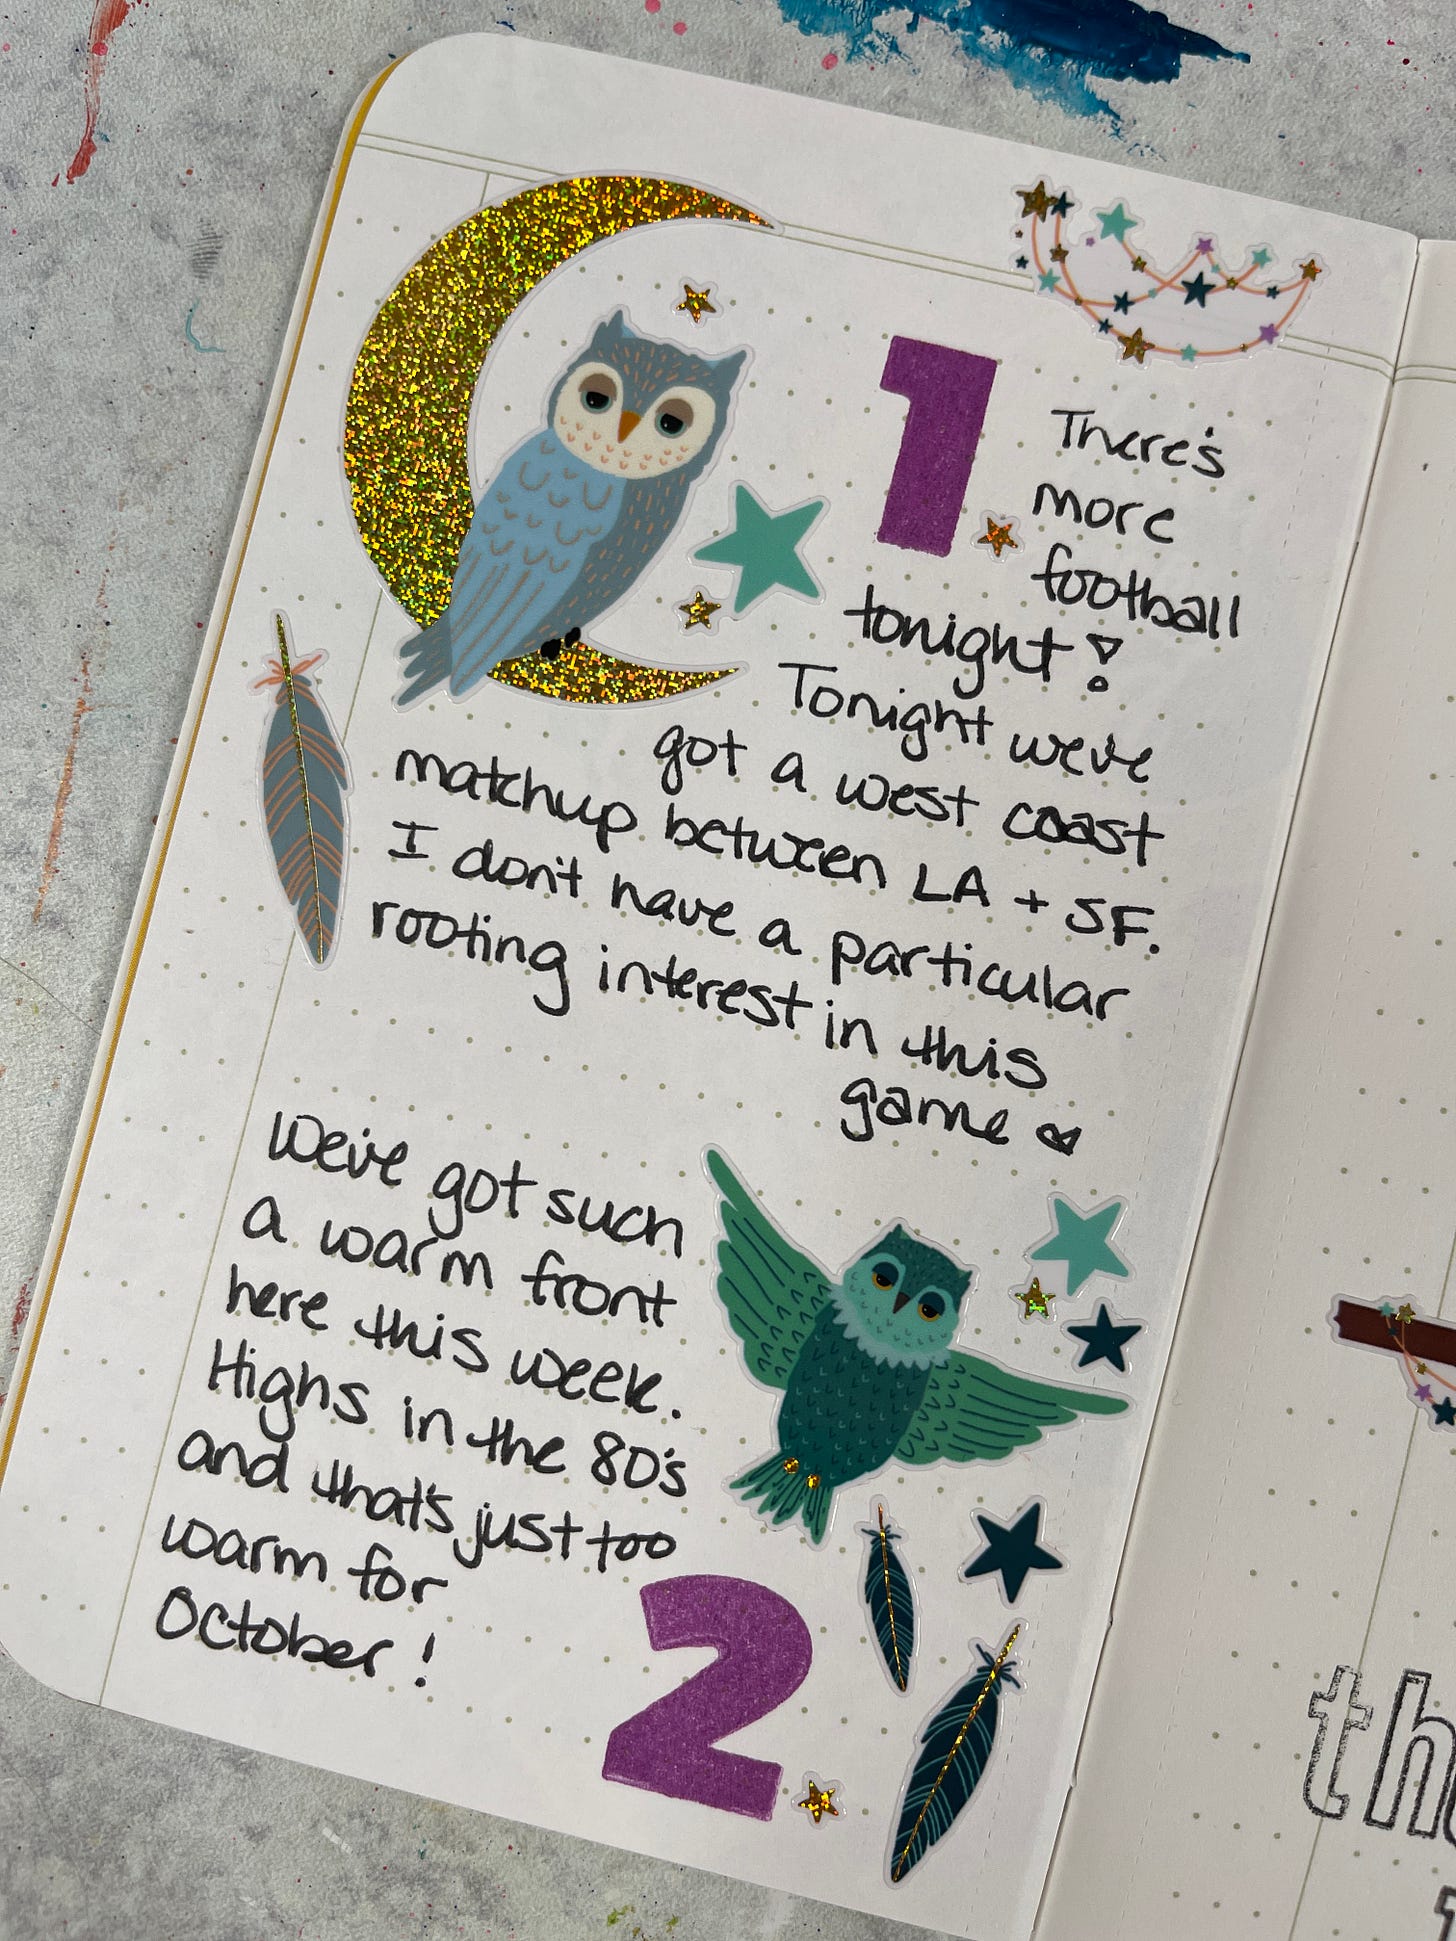 1.
There's
more
football
tonight!
Tonight we've
got a west coast
matchup between LA + SF.
I don't have a particular
rooting interest in this
game
We've got such
a warm front
here this week.
Highs in the 80's
and that's just too
warm for
October!
2.